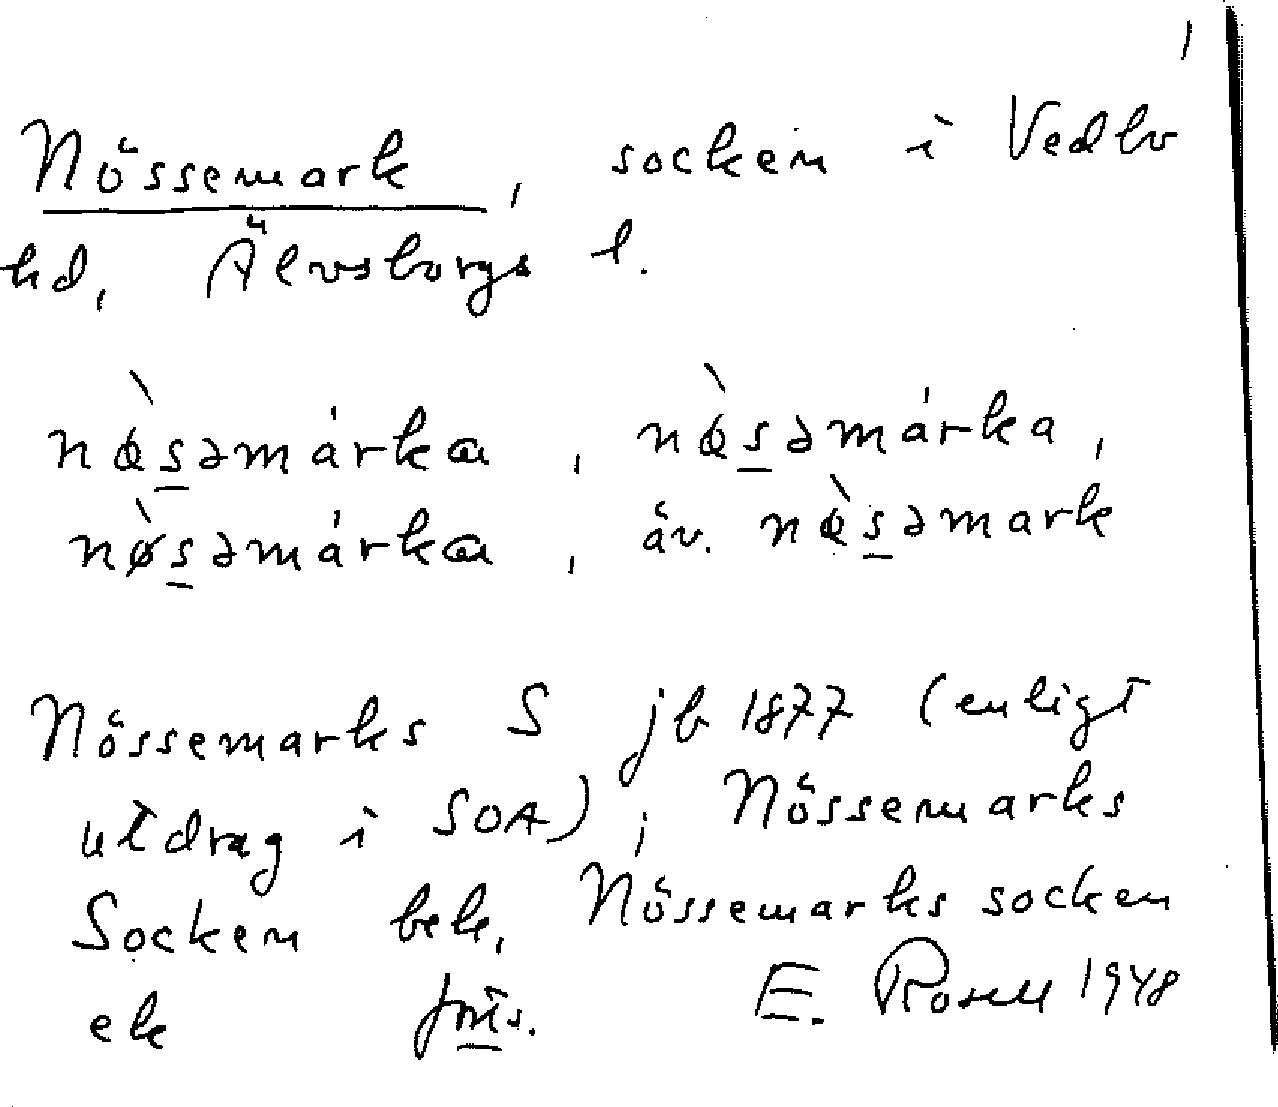 Nössemark, socken i Vedbo
hd, Älvsborgs l.
nø̀s̲əmárkɑ, nø̀s̲əmárka,
nø̀s̲əmárkɑ, äv. nø̀s̲əmark
Nössemarks S jb 1877 (enligt
utdrag i SOA); Nössemarks
Socken bek, Nössemarks socken
ek
E. Rosell 1948